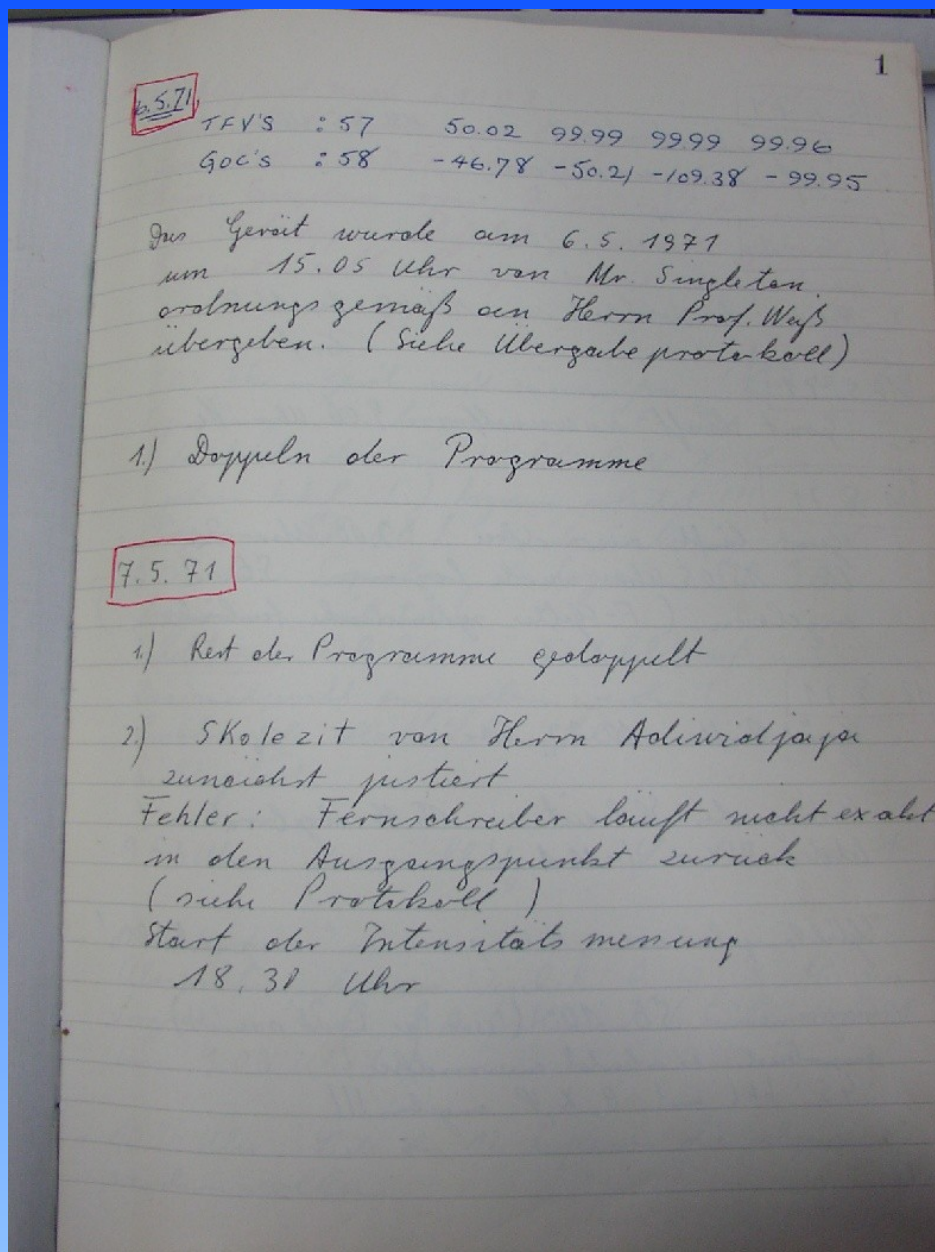 1
6.5.71
TFV'S : 57 50.02 99.99 9999 99.96
GOC'S : 58 -46.78 -50.21 -109.38 -99.95
Das Gerät wurde am 6.5.1971
um 15.05 Uhr von Mr. Singleton
ordnungsgemäß an Herrn Prof. Weiß
übergeben. (Siehe Übergabeprotokoll)
1.) Doppeln der Programme
7.5.71
1.) Rest der Programme gedoppelt
2.) Skolezit von Herrn Adiwidjaja
zunächst justiert
Fehler: Fernschreiber läuft nicht exakt
in den Ausgangspunkt zurück
(siehe Protokoll)
Start der Intensitätsmessung
18.30 Uhr